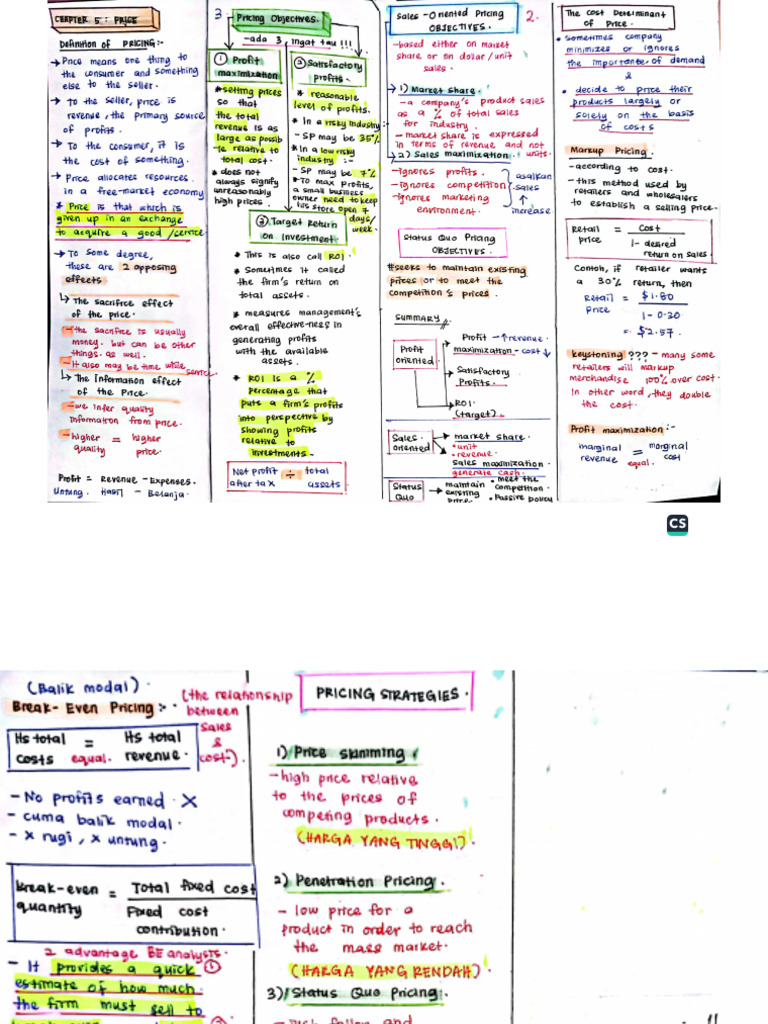 CHAPTER 5 : PRICE
Definition of PRICING :-
→ Price means one thing to
the consumer and something
else to the seller.
→ To the seller, price is
revenue, the primary source
of profits.
→ To the consumer, it is
the cost of something.
→ Price allocates resources
in a free-market economy
* Price is that which is
given up in an exchange
to acquire a good /service
→ To some degree,
these are 2 opposing
effects
↳ The sacrifice effect
of the price.
- the sacrifice is usually
money. but can be other
things. as well.
- It also may be time while
service
↳ The information effect
of the Price.
- we infer quality
information from price.
- higher = higher
quality price.
Profit = Revenue - Expenses.
Untung. Hasil - Belanja.
3.
Pricing Objectives.
- ada 3, ingat tau !!!
① Profit
maximization
* setting prices
so that
the total
revenue is as
large as possib
le relative to
total cost.
* does not
always signify
unreasonably
high prices.
③ Satisfactory
profits.
* reasonable
level of profits.
* In a risky industry :-
- SP may be 35%
* In a low risky
industry :-
- SP may be 7%
* To max Profits,
a small business
owner need to keep
his store open 7
days/
week.
② Target Return
on Investment
* This is also call ROI.
* Sometimes it called
the firm's return on
total assets.
* measures management's
overall effective-ness in
generating profits
with the available
assets.
* ROI is a %
percentage that
puts a firm's profits
into perspective by
showing profits
relative to
investments.
Net profit ÷ total
after tax assets
Sales - Oriented Pricing
OBJECTIVES.
2.
- based either on market
share or on dollar/unit
sales.
→ 1) Market share.
- a company's product sales
as a % of total sales
for industry.
- market share is expressed
in terms of revenue and not
units.
→ 2) Sales maximization
- Ignores profits.
- ignores competition
- Ignores marketing
environment.
asalkan
sales
↑
increase
Status Quo Pricing
OBJECTIVES.
# seeks to maintain existing
prices or to meet the
competition's prices.
SUMMARY //
Profit
oriented
Profit - ↑ revenue
maximization - cost ↓
Satisfactory
Profits.
ROI
(target)
Sales
oriented
market share.
• unit
• revenue.
Sales maximization
generate cash.
Status
Quo
→ maintain
existing
price.
• meet the
competition.
• Passive policy
The Cost Determinant
of Price.
• sometimes company
minimizes or ignores
the importance of demand
&
• decide to price their
products largely or
solely on the basis
of costs
Markup Pricing.
- according to cost.
- this method used by
retailers and wholesalers
to establish a selling price.
Retail = Cost
price 1 - desired
return on sales
Contoh, if retailer wants
a 30% return, then
Retail = $1.80
Price 1 - 0.30
= $2.57.
keystoning ??? - many some
retailers will markup
merchandise 100% over cost.
In other word, they double
the cost.
Profit maximization :-
marginal = marginal
revenue equal. cost
CS
(Balik modal).
Break-Even Pricing :-
(the relationship
between
sales
&
cost.)
Its total = Its total
costs equal. revenue.
- No profits earned. X
- cuma balik modal.
- x rugi, x untung.
break-even = Total fixed cost
quantity Fixed cost
contribution.
2 advantage BE analysis.
- It provides a quick ①
estimate of how much
the firm must sell to
PRICING STRATEGIES.
1) Price skimming.
- high price relative
to the prices of
competing products.
(HARGA YANG TINGGI)
2) Penetration Pricing.
- low price for a
product in order to reach
the mass market.
(HARGA YANG RENDAH)
3) Status Quo Pricing.